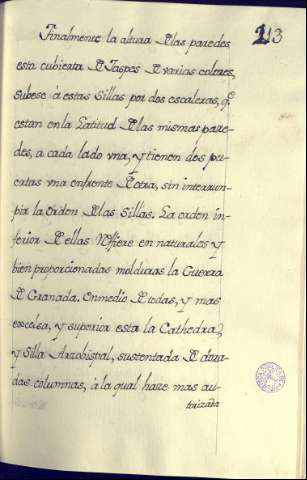 213
Finalmente la altura de las paredes
esta cubierta de Jaspes de varias colores,
Subese à estas Sillas por dos escaleras, q.e
estan en la Latitud de las mismas pare-
des, a cada lado vna, y tienen dos pu-
ertas vna enfrente de otra, sin interrum-
pir la orden de las Sillas. La orden in-
ferior de ellas refiere en naturales y
bien proporcionadas molduras la Guerra
de Granada. Enmedio de todas, y mas
excelsa, y superior esta la Cathedra,
y Silla Arzobispal, sustentada de dora-
das columnas, à la qual haze mas au-
torizada